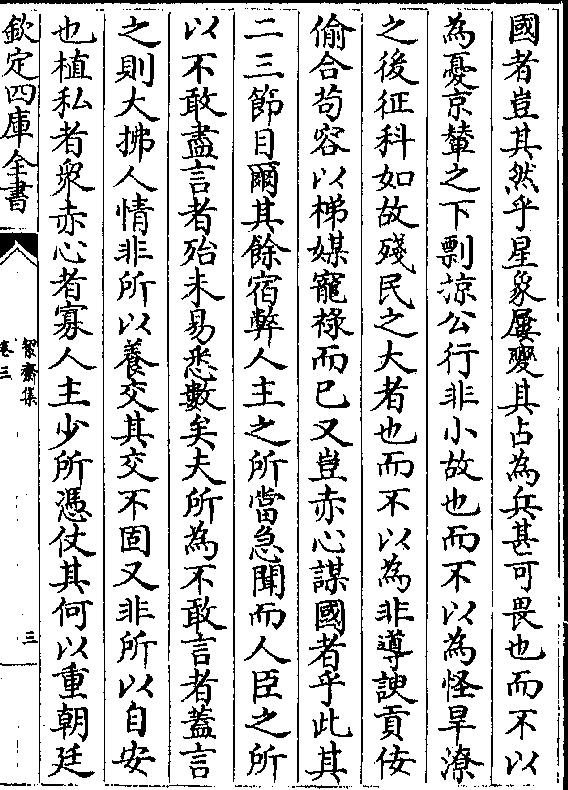 國者豈其然乎星象屢變其占為兵甚可畏也而不以
為憂京輦之下剽掠公行非小故也而不以為怪旱潦
之後征科如故殘民之大者也而不以為非導諛貢佞
偷合苟容以梯媒寵祿而已又豈赤心謀國者乎此其
二三節目爾其餘宿弊人主之所當急聞而人臣之所
以不敢盡言者殆未易悉數矣夫所為不敢言者蓋言
之則大拂人情非所以養交其交不固又非所以自安
也植私者衆赤心者寡人主少所憑仗其何以重朝廷
欽定四庫全書
絜齋集
卷三
三